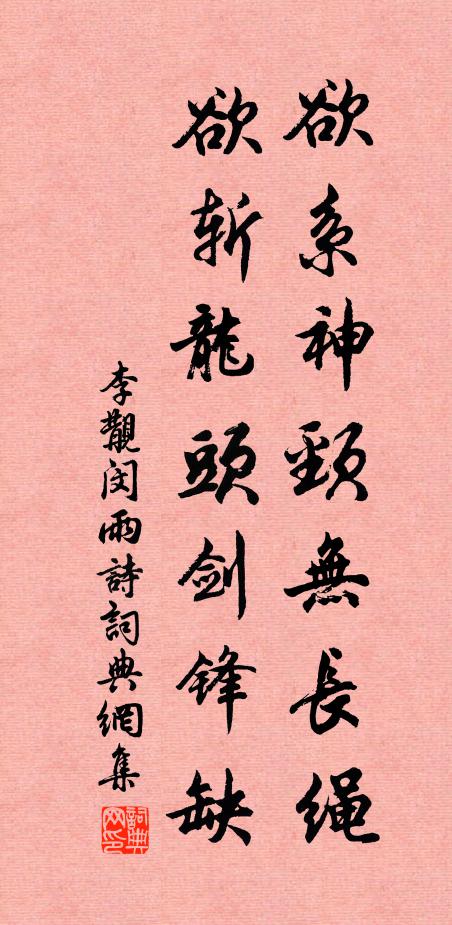 欲系神頸無長绳
欲斩龍頭剑锋缺
李覯闵雨詩詞典網集
詞典网印